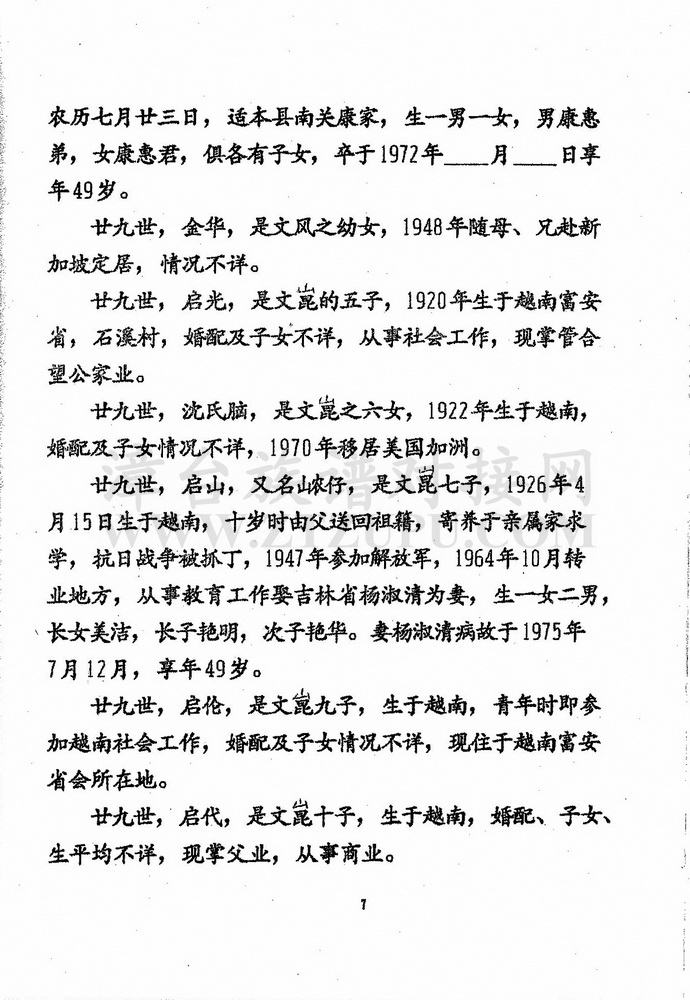 农历七月廿三日，适本县南关康家，生一男一女，男康惠
弟，女康惠君，俱各有子女，卒于1972年____月____日享
年49岁。
廿九世，金华，是文风之幼女，1948年随母、兄赴新
加坡定居，情况不详。
廿九世，启光，是文崑的五子，1920年生于越南富安
省，石溪村，婚配及子女不详，从事社会工作，现掌管合
望公家业。
廿九世，沈氏脑，是文崑之六女，1922年生于越南，
婚配及子女情况不详，1970年移居美国加洲。
廿九世，启山，又名山农仔，是文崑七子，1926年4
月15日生于越南，十岁时由父送回祖籍，寄养于亲属家求
学，抗日战争被抓丁，1947年参加解放军，1964年10月转
业地方，从事教育工作娶吉林省杨淑清为妻，生一女二男，
长女美洁，长子艳明，次子艳华。妻杨淑清病故于1975年
7月12月，享年49岁。
廿九世，启伦，是文崑九子，生于越南，青年时即参
加越南社会工作，婚配及子女情况不详，现住于越南富安
省会所在地。
廿九世，启代，是文崑十子，生于越南，婚配、子女、
生平均不详，现掌父业，从事商业。
7
漳台族谱对接网
WWW.ZTZUPU.COM